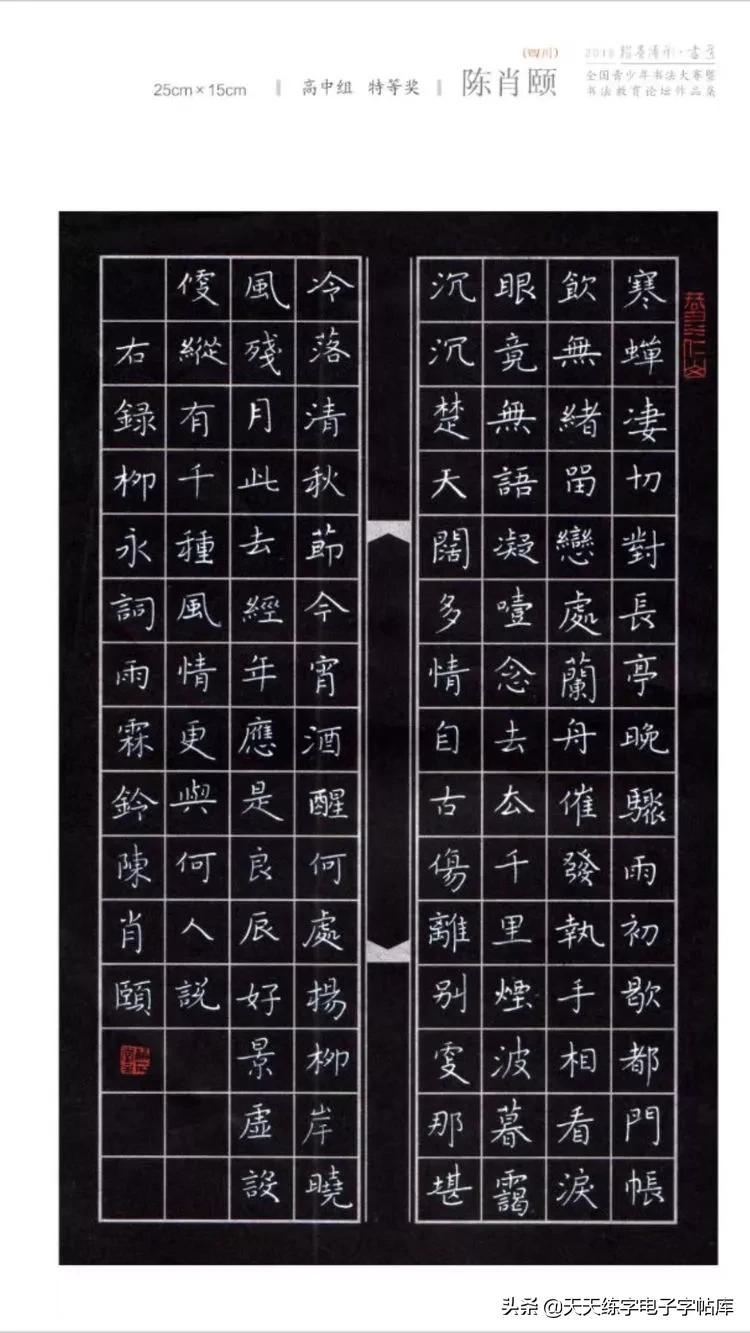 25cm×15cm 高中组 特等奖 陈肖颐
(四川)
全国青少年书法大赛暨
书法教育论坛作品集
寒蟬凄切對長亭晚驟雨初歇都門帳
飲無緒留戀處蘭舟催發執手相看淚
眼竟無語凝噎念去去千里煙波暮靄
沉沉楚天闊多情自古傷離别更那堪
冷落清秋節今宵酒醒何處楊柳岸曉
風殘月此去經年應是良辰好景虛設
便縱有千種風情更與何人説
右録柳永詞雨霖鈴陳肖頤
头条 @天天练字电子字帖库